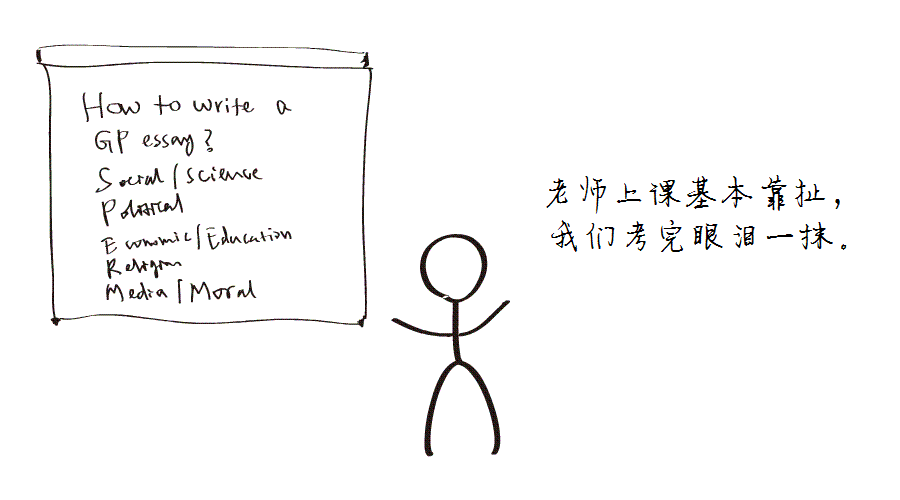 How to write a
GP essay?
Social/Science
Political
Economic/Education
Religion
Media/Moral
老师上课基本靠扯，
我们考完眼泪一抹。